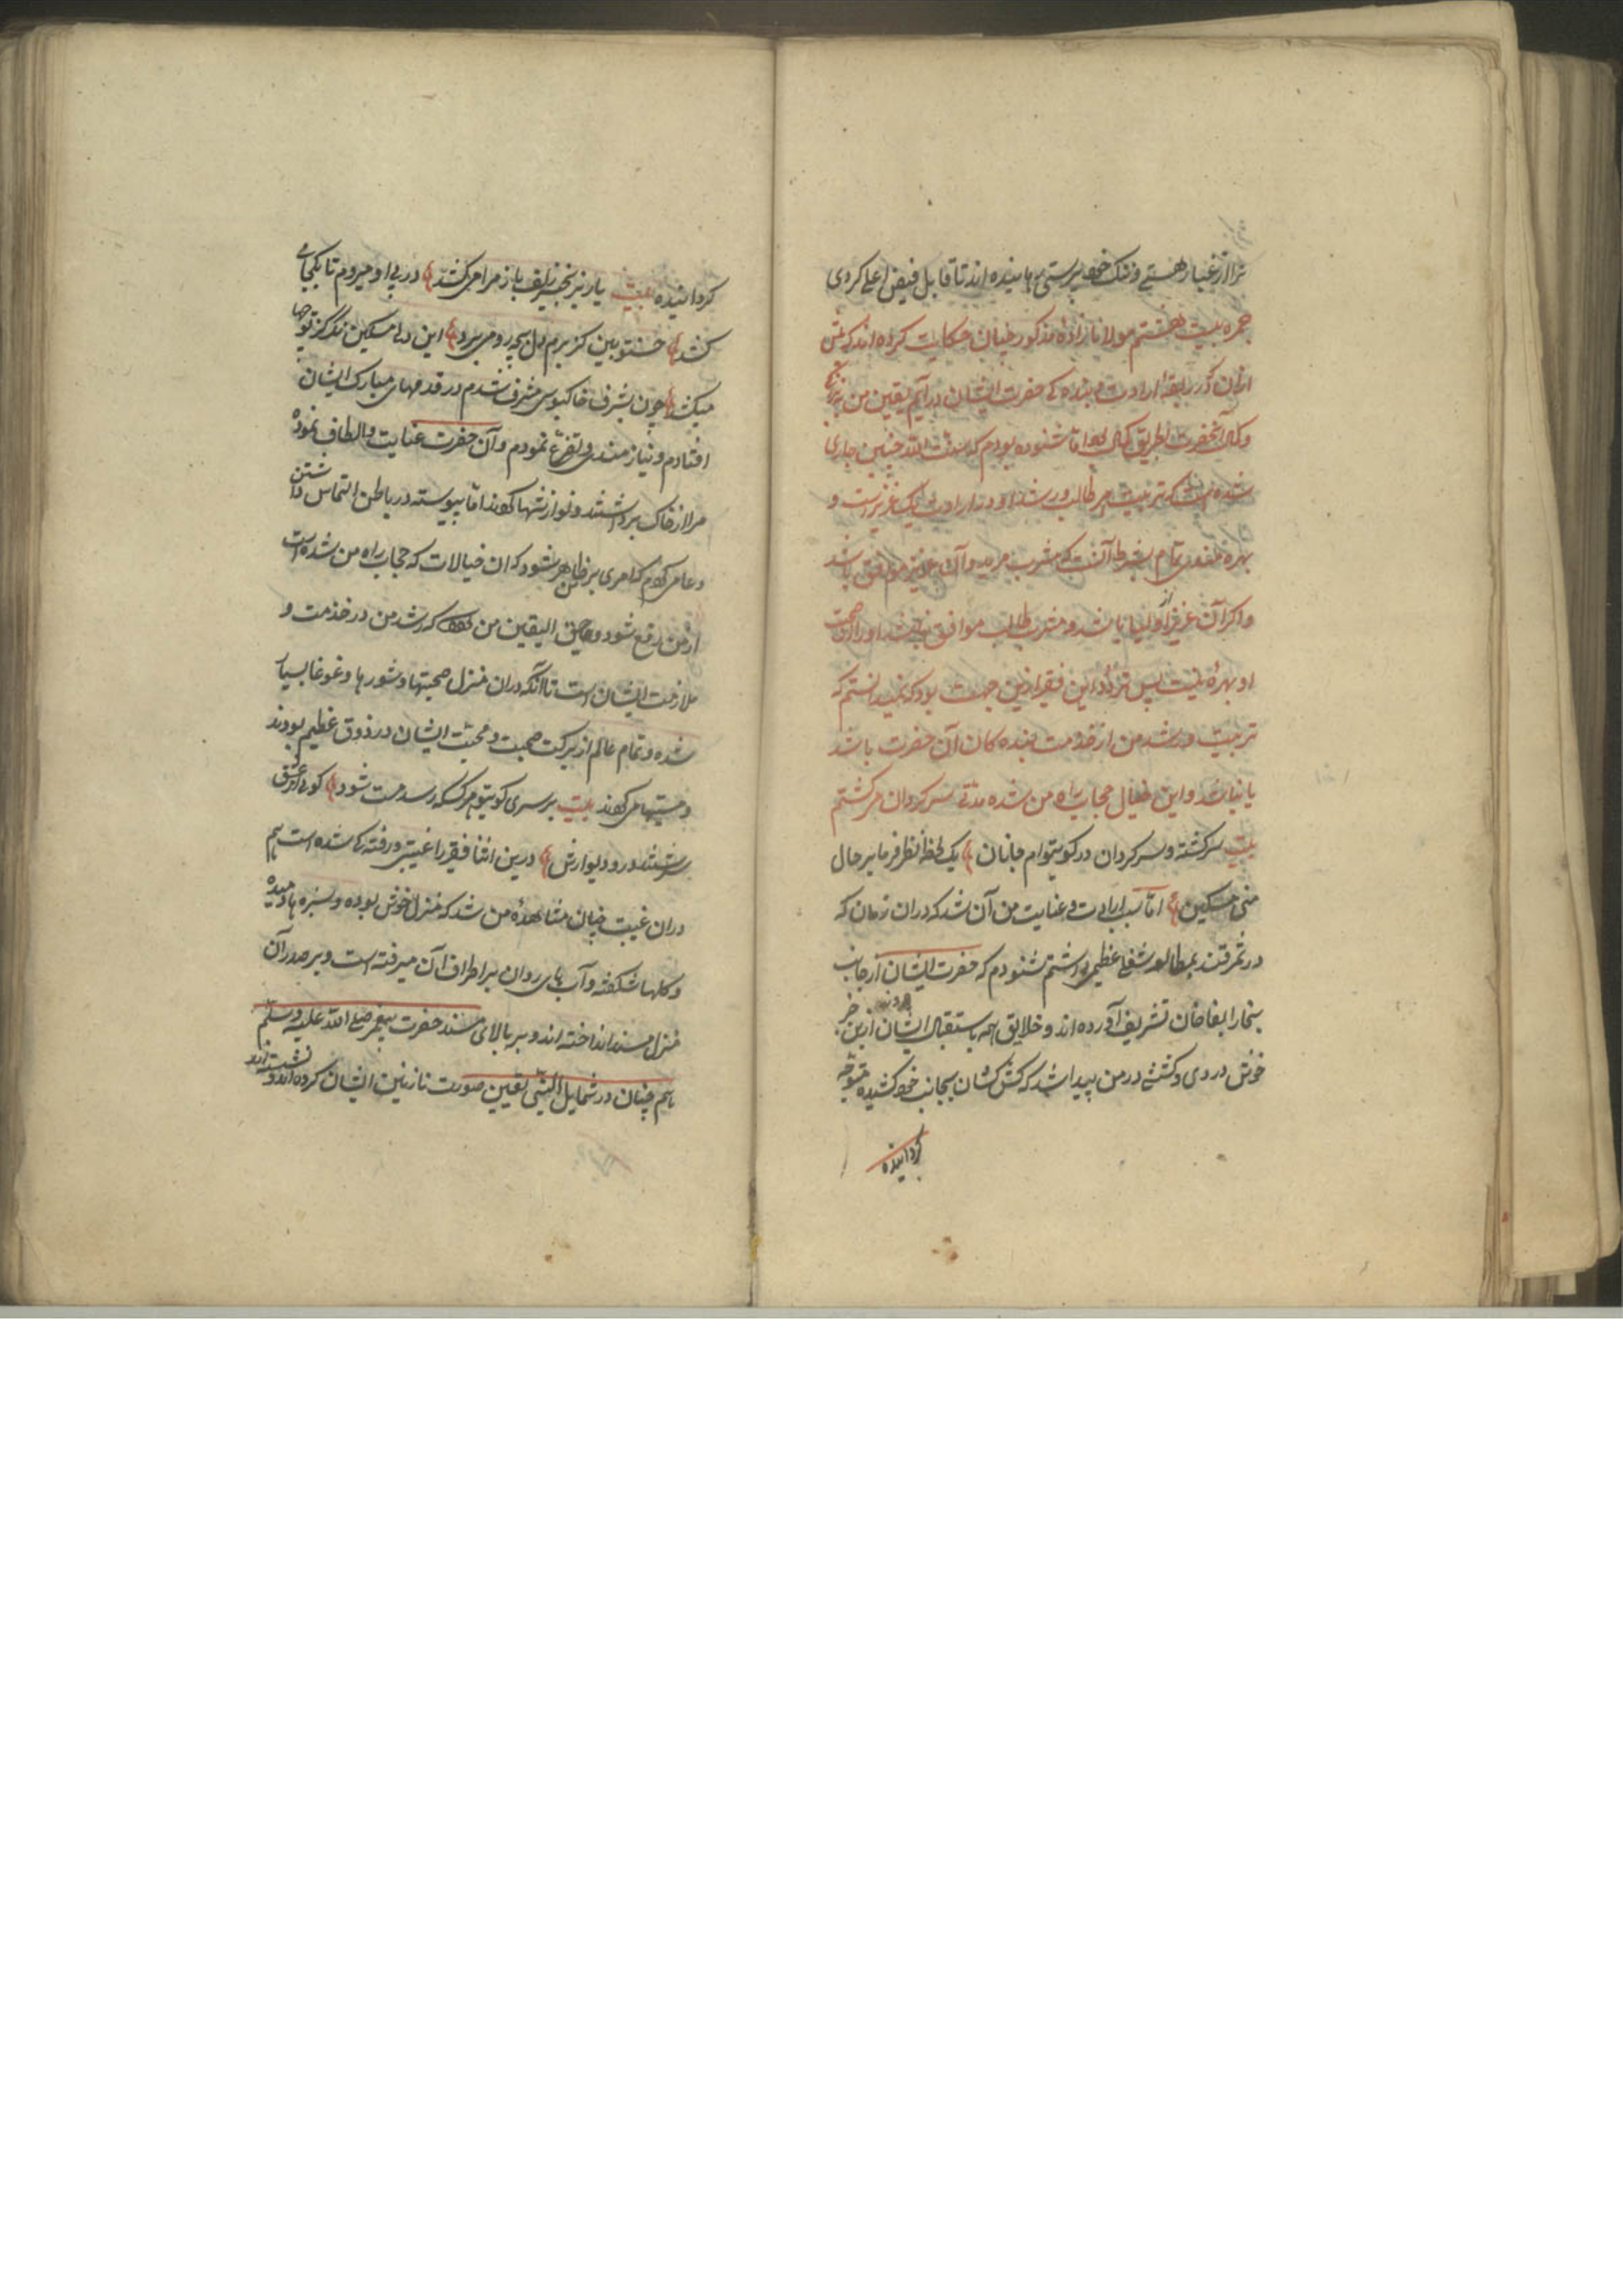 ترا از غبار هستے و زنک خود پرستی رهانیده اند تا قابل فیض اعلے کردی
حجره بیست هشتم مولانا زاده مذکور چنان حکایت کرده اند که پیش
ازان که در ربقهٔ ارادت بنده کے حضرت ایشان در آیم یقین من
وکمال آنحضرت بطریق کمال بود اما شنوده بودم که سنت الله چنین جاری
شده است که تربیت هر طالب و رشد او در ارادت یک عزیز است و
بهره مندی تمام بشرط آنست که مشرب مرید و آن عزیز موافق باشد
و اکر آن عزیز از اولیا باشد و مشرب طالب موافق نباشد او را از صحبت
او بهرهٔ نیست پس تردد این فقیر ازین جهت بود که نمیدانستم که
تربیت و رشد من از خدمت بنده کان آن حضرت باشد
یا نباشد و این خیال حجاب راه من شده مدتے سر کردان می کشتم
بیت سر کشته و سر کردان در کوی توام جانان یک لحظه نظر فرما بر حال
من مسکین اما سبب ارادت و عنایت من آن شد که دران زمان که
در سمرقند بمطالعه شغلے عظیم داشتم شنودم که حضرت ایشان از جانب
بخارا بغا خان تشریف آورده اند و خلایق همه باستقبال ایشان ازین خبر
خوش دردی و کششے در من پیدا شد که کش کشان بجانب خود کشیده متوجه
کردانیده
کردانیده بیت یار بزنجیر زلف باز مرا می کشد در پی او میروم تا بکجا می
کشد چون بشرف خاکبوس مشرف شدم در قدمهای مبارک ایشان
افتادم و نیازمندی و تضرع نمودم و آن حضرت عنایت و الطاف نموده
مرا از خاک برداشتند و نوازشها کردند اما پیوسته در باطن التماس داشتن
دعا می کردم که امری بر من ظاهر شود که ان خیالات که حجاب راه من شده است
از من رفع شود و بحق الیقین من کردد که رشد من در خدمت و
ملازمت ایشان است تا آنکه دران منزل صحبتها و شورها و غوغا بسیار
شده و تمام عالم از برکت صحبت و محبت ایشان در ذوق عظیم بودند
و مستیها می کردند بیت بر سر کوی تو هر کس که رسد مست شود کویی از عشق
سرشتند در و دیوارش درین اثنا فقیر را غیبتی و رفته کے شده است
دران غیبت چنان مشاهدهٔ من شد که منزل خوش بوده و سبزه ها دمیده
و کلها شکفته و آب های روان بر اطراف آن میرفته است و بر صدر آن
منزل مسند انداخته اند و بر بالای مسند حضرت پیغمبر صلے الله علیه و سلم
هم چنان در شمایل النبی تعیین صورت نازنین ایشان کرده اند نشسته اند و